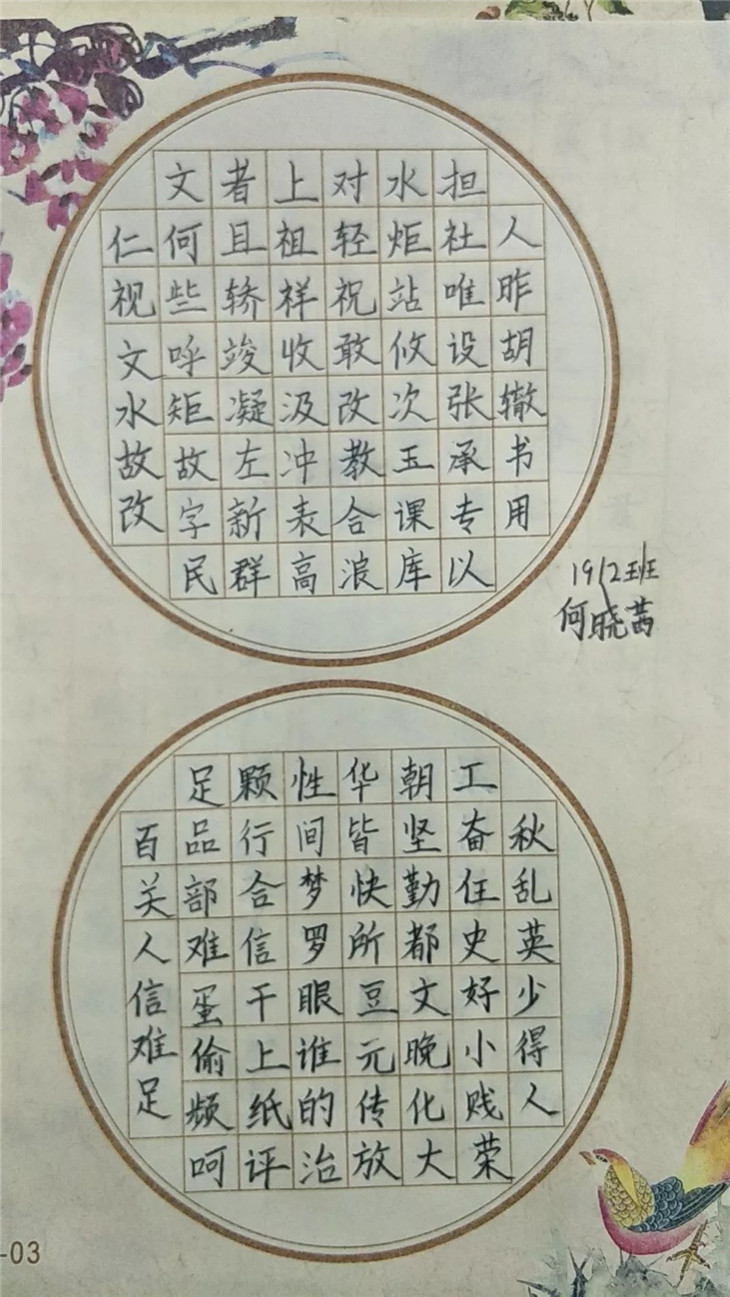 文者上对水担
仁何且祖轻炬社人
视些轿祥祝站唯昨
文呼竣收敢攸设胡
水矩凝汲改次张辙
故故左冲教玉承书
改字新表合课专用
民群高浪库以
1912班
何晓茜
足颗性华朝工
百品行间皆坚奋秋
关部合梦快勤住乱
人难信罗所都史英
信蛋干眼豆文好少
难偷上谁元晚小得
足频纸的传化贱人
呵评治放大荣
-03